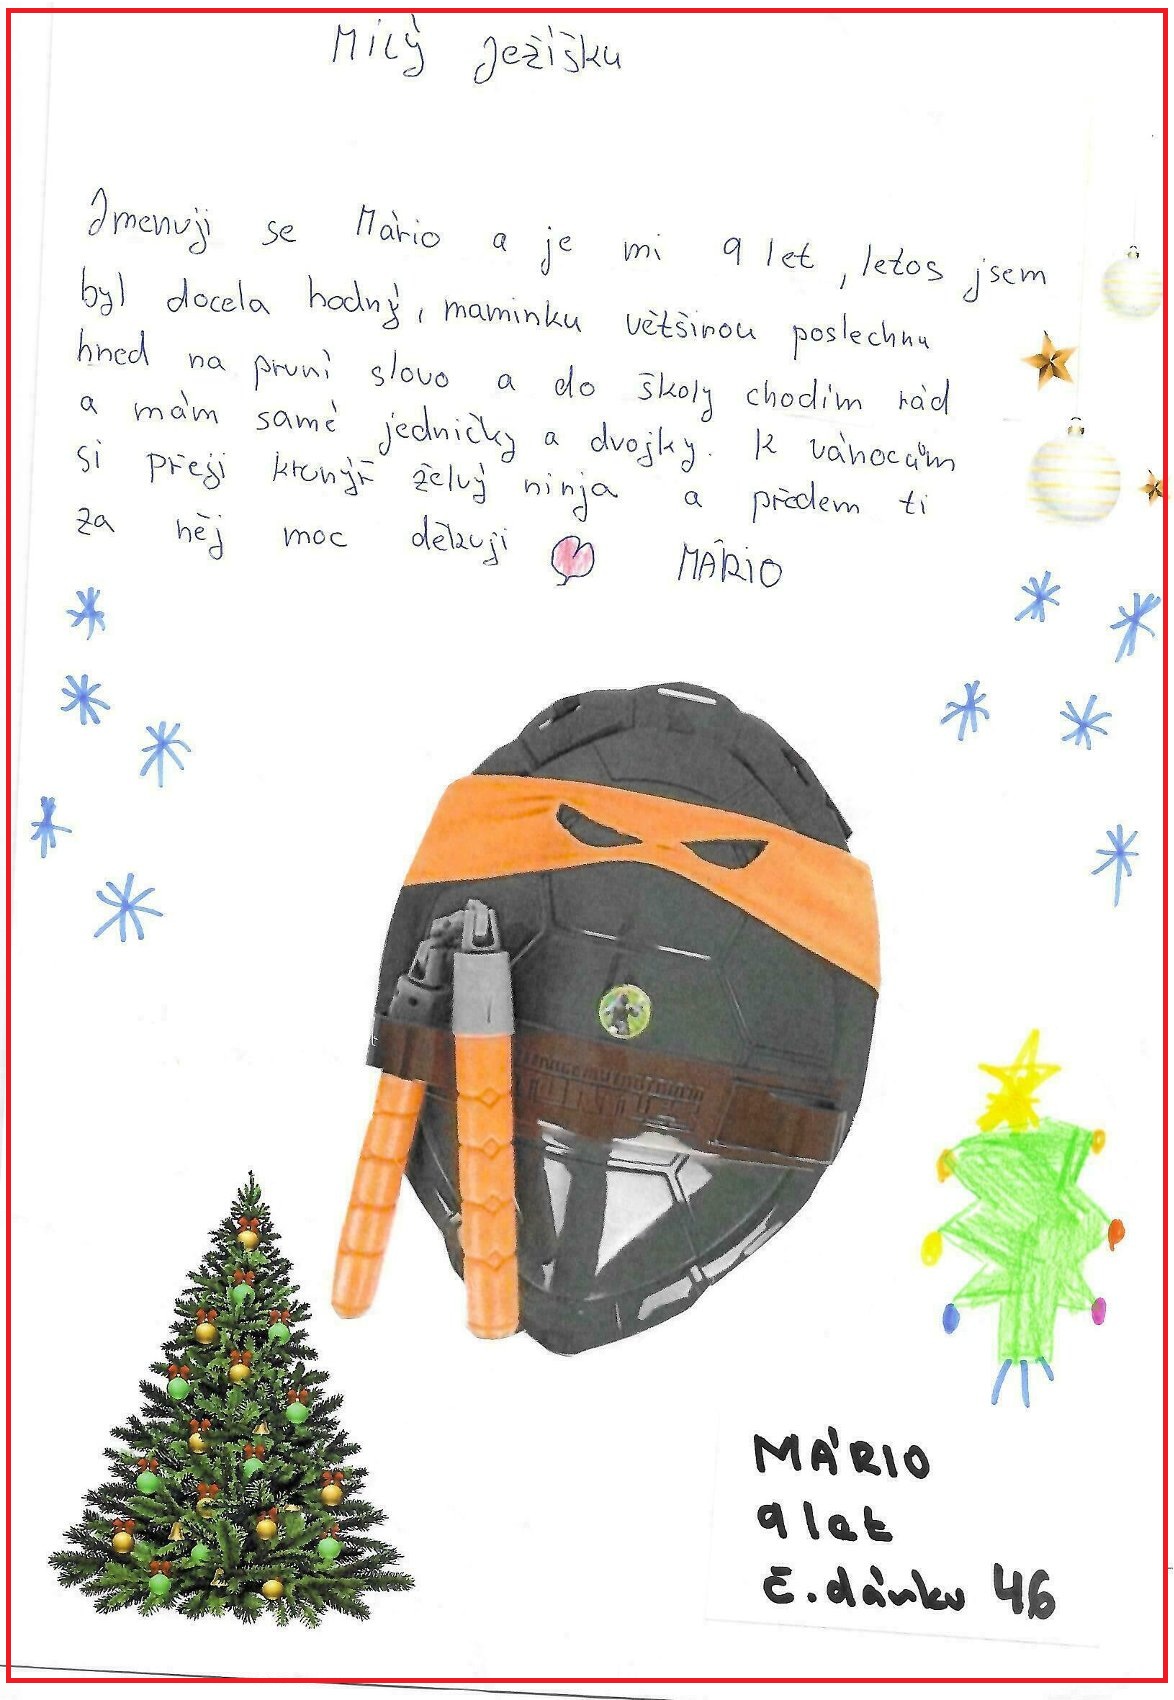 Milý Ježíšku
Jmenuji se Mário a je mi 9 let, letos jsem
byl docela hodný, maminku většinou poslechnu
hned na první slovo a do školy chodím rád
a mám samé jedničky a dvojky. K vánocům
si přeji krunýř želvy ninja a předem ti
za něj moc děkuji MÁRIO
MÁRIO
9 let
č. dárku 46